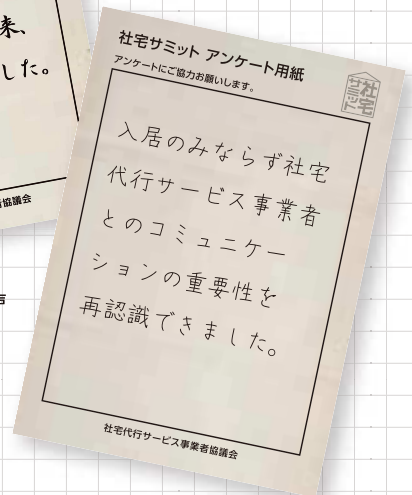 来、
した。
協議会
社宅サミット アンケート用紙
アンケートにご協力お願いします。
社宅
サミット
入居のみならず社宅
代行サービス事業者
とのコミュニケー
ションの重要性を
再認識できました。
社宅代行サービス事業者協議会